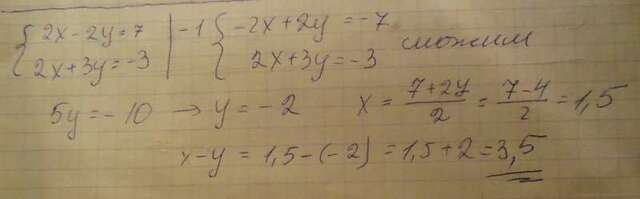 { 2x-2y=7 | -1 { -2x+2y=-7
{ 2x+3y=-3 | { 2x+3y=-3 сложим
5y=-10 → y=-2 x = (7+2y)/2 = (7-4)/2 = 1,5
x-y = 1,5-(-2) = 1,5+2 = 3,5